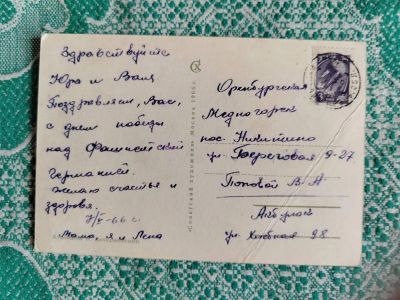 Здравствуйте
Юра и Валя
Поздравляем, Вас,
с днем победы
над Фашистской
Германией.
Желаю счастья и
здоровя.
7/V-66 г.
Мама, я и Лена
«Советский художник» Москва 1966 г.
Оренбургская
Медногорск
пос. Никитино
ул. Береговая 9-27
Поповой В А
ул. 98